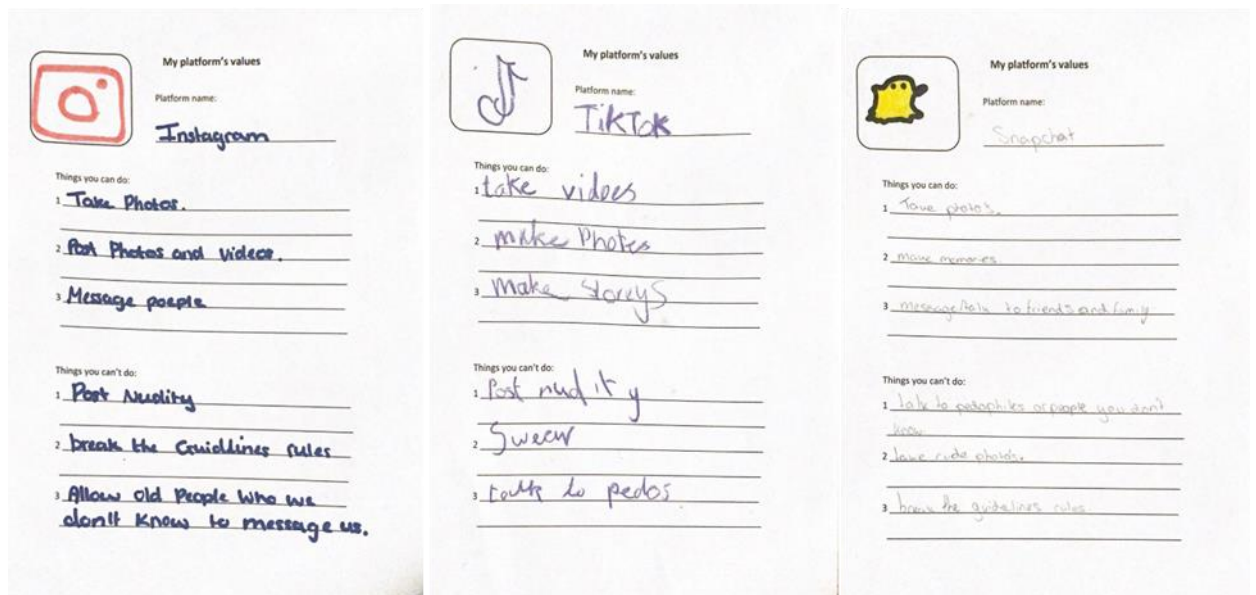 My platform's values
Platform name:
Instagram
Things you can do:
1 Take Photos.
2 Post Photos and videos.
3 Message poeple
Things you can't do:
1 Post Nudity
2 break the Guidlines rules
3 Allow old People who we
don't know to message us.
My platform's values
Platform name:
TikTok
Things you can do:
1 take vidoes
2 make Photos
3 make storeys
Things you can't do:
1 Post nudity
2 Swear
3 talk to pedos
My platform's values
Platform name:
Snapchat
Things you can do:
1 Take photos.
2 make memories.
3 message/talk to friends and family
Things you can't do:
1 talk to pedophiles or people you don't
know
2 take rude photos.
3 break the guidelines rules